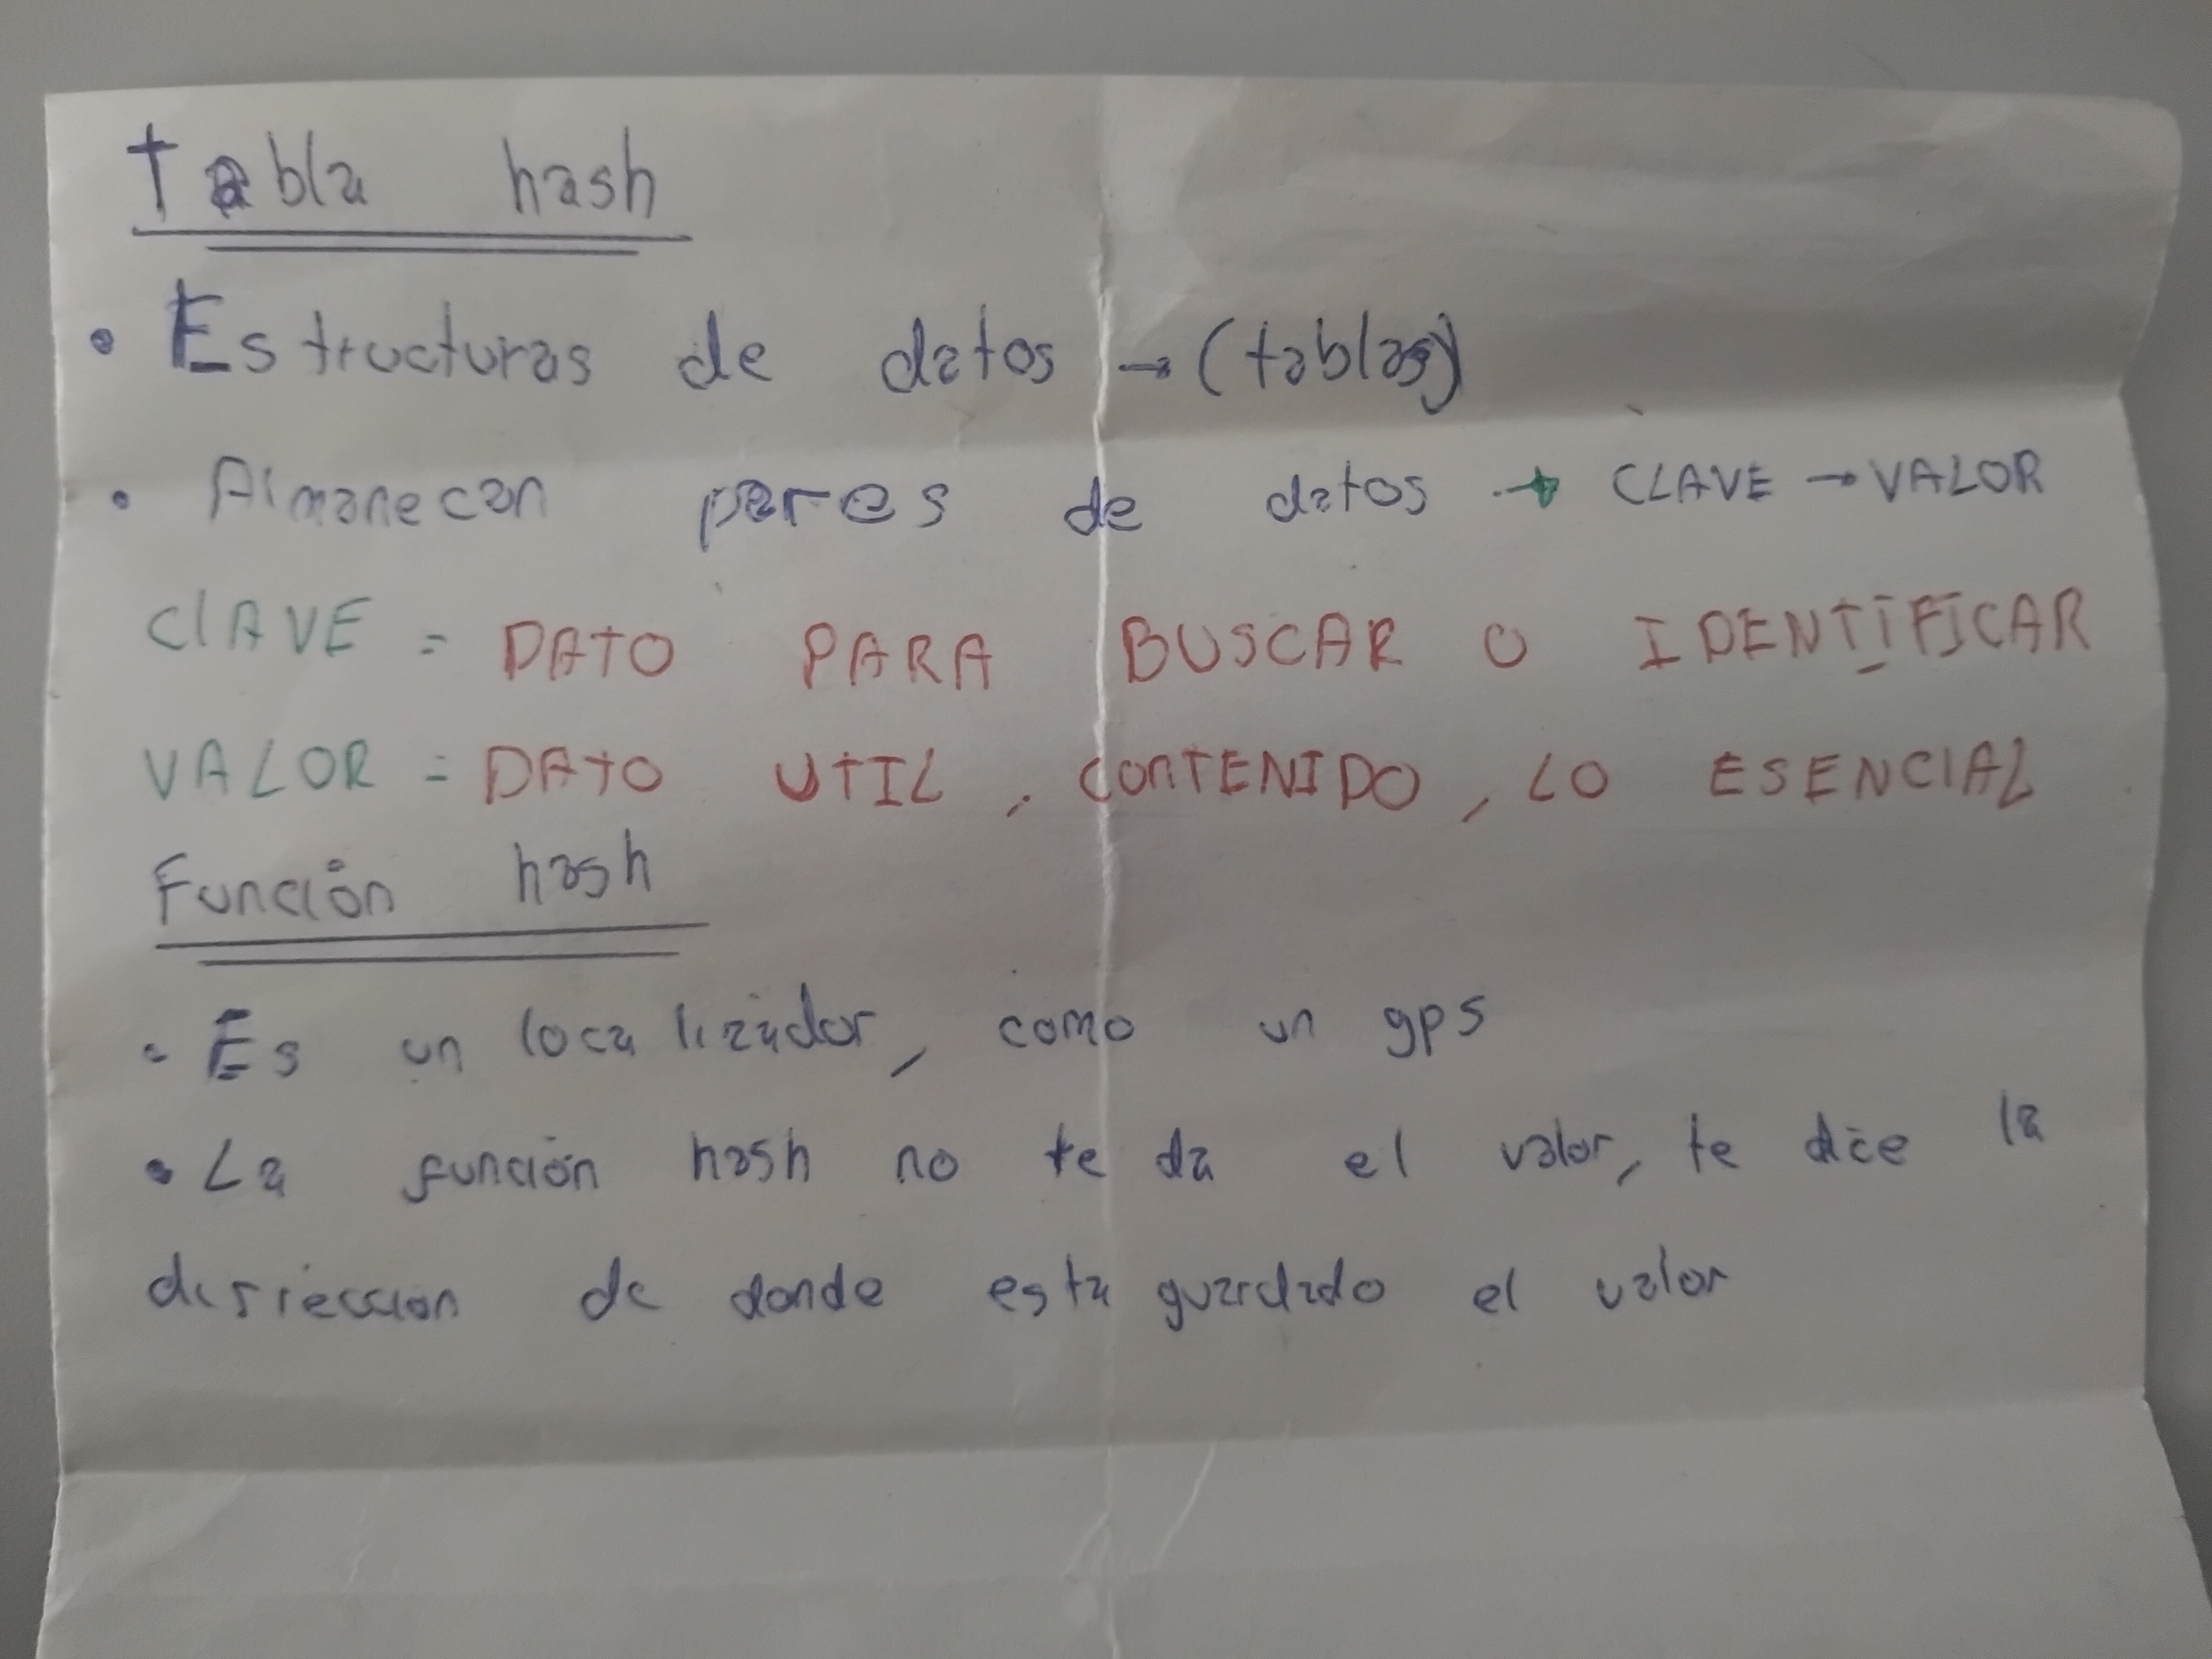 Tabla hash
• Estructuras de datos → (tablas)
• Almanecan pares de datos → CLAVE → VALOR
ClAVE = DATO PARA BUSCAR O IDENTIFICAR
VALOR = DATO UTIL, CONTENIDO, LO ESENCIAL
Función hash
• Es un localizador, como un gps
• La función hash no te da el valor, te dice la
dirrección de donde esta guardado el valor